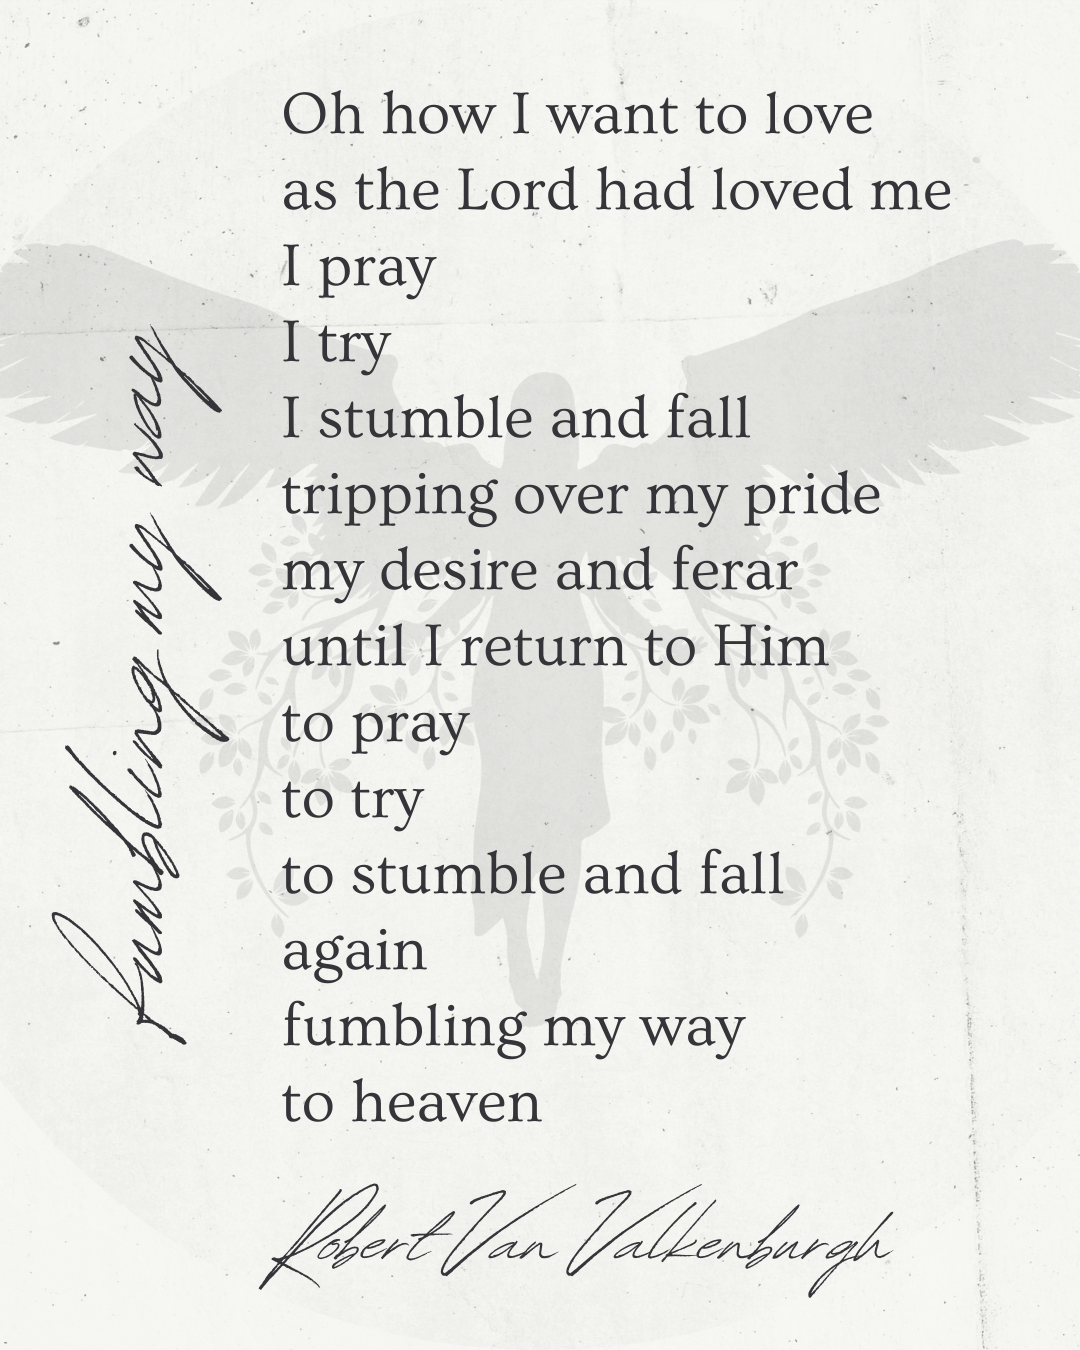 fumbling my way
Oh how I want to love
as the Lord had loved me
I pray
I try
I stumble and fall
tripping over my pride
my desire and ferar
until I return to Him
to pray
to try
to stumble and fall
again
fumbling my way
to heaven
Robert Van Valkenburgh